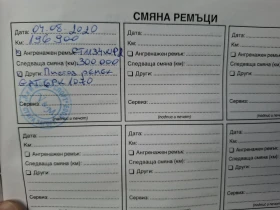 СМЯНА РЕМЪЦИ
Дата: 04.08.2020
Км: 196 900
Ангренажен ремък:
Следваща смяна (км): 300 000
Други: Пистов ремък
6PK 1070
Сервиз:
(подпис и печат)
Дата:
Км:
Ангренажен ремък:
Следваща смяна (км):
Други:
Сервиз:
(подпис и печат)
Дата:
Км:
Ангренажен ремък:
Следваща смяна (км):
Други:
Сервиз:
(подпис и печат)
Дата:
Км:
Ангренажен ремък:
Следваща смяна (км):
Други:
Сервиз:
Дата:
Км:
Ангренажен ремък:
Следваща смяна (км):
Други:
Сервиз:
Дата:
Км:
Ангренажен
Следваща смяна
Други:
Сервиз: